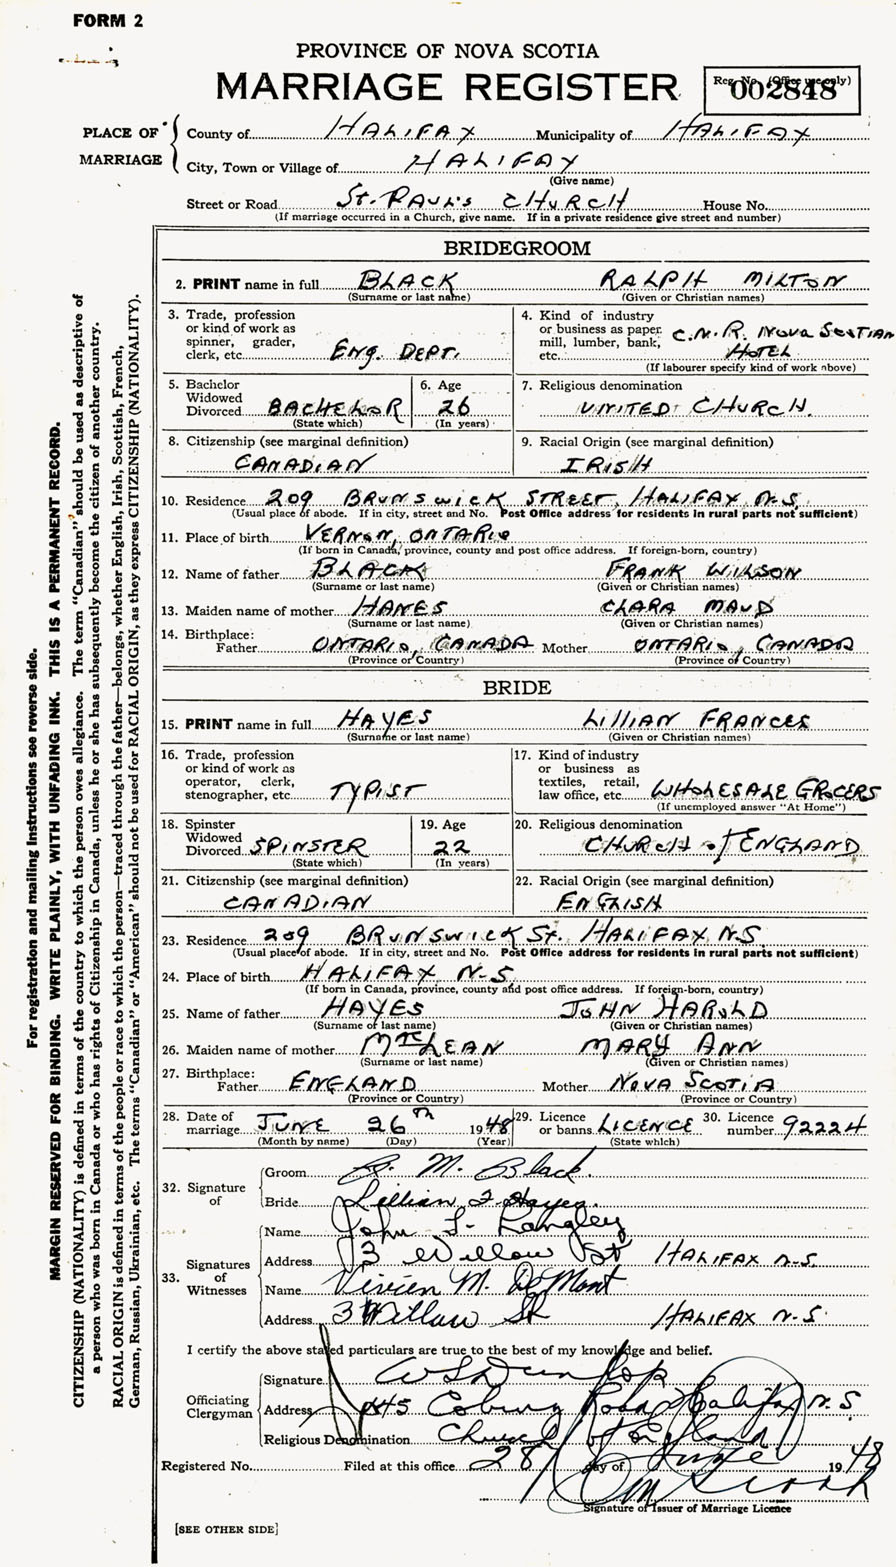 FORM 2
PROVINCE OF NOVA SCOTIA
MARRIAGE REGISTER
Reg. No. (Office use only)
002848
PLACE OF MARRIAGE
County of HALIFAX Municipality of HALIFAX
City, Town or Village of HALIFAX
(Give name)
Street or Road St. PAUL'S CHURCH House No.
(If marriage occurred in a Church, give name. If in a private residence give street and number)
BRIDEGROOM
2. PRINT name in full BLACK RALPH MILTON
(Surname or last name) (Given or Christian names)
3. Trade, profession or kind of work as spinner, grader, clerk, etc. ENG. DEPT.
4. Kind of industry or business as paper mill, lumber, bank, etc. C.N.R. NOVA SCOTIAN HOTEL
(If labourer specify kind of work above)
5. Bachelor Widowed Divorced BACHELOR
(State which)
6. Age 26
(In years)
7. Religious denomination
UNITED CHURCH.
8. Citizenship (see marginal definition)
CANADIAN
9. Racial Origin (see marginal definition)
IRISH
10. Residence 209 BRUNSWICK STREET, HALIFAX N.S.
(Usual place of abode. If in city, street and No. Post Office address for residents in rural parts not sufficient)
11. Place of birth VERNON, ONTARIO
(If born in Canada, province, county and post office address. If foreign-born, country)
12. Name of father BLACK FRANK WILSON
(Surname or last name) (Given or Christian names)
13. Maiden name of mother HANES CLARA MAUD
(Surname or last name) (Given or Christian names)
14. Birthplace:
Father ONTARIO, CANADA Mother ONTARIO, CANADA
(Province or Country) (Province or Country)
BRIDE
15. PRINT name in full HAYES LILLIAN FRANCES
(Surname or last name) (Given or Christian names)
16. Trade, profession or kind of work as operator, clerk, stenographer, etc. TYPIST
17. Kind of industry or business as textiles, retail, law office, etc. WHOLESALE GROCERS
(If unemployed answer "At Home")
18. Spinster Widowed Divorced SPINSTER
(State which)
19. Age 22
(In years)
20. Religious denomination
CHURCH of ENGLAND
21. Citizenship (see marginal definition)
CANADIAN
22. Racial Origin (see marginal definition)
ENGLISH
23. Residence 209 BRUNSWICK St. HALIFAX, N.S.
(Usual place of abode. If in city, street and No. Post Office address for residents in rural parts not sufficient)
24. Place of birth HALIFAX N.S.
(If born in Canada, province, county and post office address. If foreign-born, country)
25. Name of father HAYES JOHN HAROLD
(Surname of last name) (Given or Christian names)
26. Maiden name of mother McLEAN MARY ANN
(Surname or last name) (Given or Christian names)
27. Birthplace:
Father ENGLAND Mother NOVA SCOTIA
(Province or Country) (Province or Country)
28. Date of marriage JUNE 26th 1948
(Month by name) (Day) (Year)
29. Licence or banns LICENCE
(State which)
30. Licence number 92224
32. Signature of
Groom R. M. Black.
Bride Lillian F. Hayes.
33. Signatures of Witnesses
Name John F. Langley
Address 3 Willow St HALIFAX N.S.
Name Vivien M. DeMont
Address 3 Willow St HALIFAX N.S.
I certify the above stated particulars are true to the best of my knowledge and belief.
Officiating Clergyman
Signature W S Dunlop
Address 445 Coburg Road Halifax N.S.
Religious Denomination Church of England
Registered No. Filed at this office 28 day of June 1948
Signature of Issuer of Marriage Licence
[SEE OTHER SIDE]
For registration and mailing instructions see reverse side.
MARGIN RESERVED FOR BINDING. WRITE PLAINLY, WITH UNFADING INK. THIS IS A PERMANENT RECORD.
CITIZENSHIP (NATIONALITY) is defined in terms of the country to which the person owes allegiance. The term "Canadian" should be used as descriptive of
a person who was born in Canada or who has rights of Citizenship in Canada, unless he or she has subsequently become the citizen of another country.
RACIAL ORIGIN is defined in terms of the people or race to which the person—traced through the father—belongs, whether English, Irish, Scottish, French,
German, Russian, Ukrainian, etc. The terms "Canadian" or "American" should not be used for RACIAL ORIGIN, as they express CITIZENSHIP (NATIONALITY).